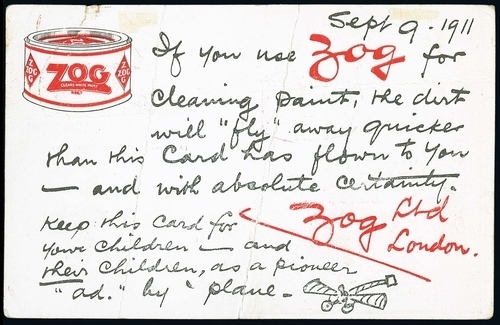 Sept 9 - 1911
ZOG
ZOG
ZOG
CLEANS WHITE PAINT
If you use Zog for
cleaning paint, the dirt
will "fly" away quicker
than this Card has flown to you
— and with absolute certainty.
Zog Ltd
London.
Keep this Card for
your children — and
their children, as a pioneer
"ad." by 'plane -